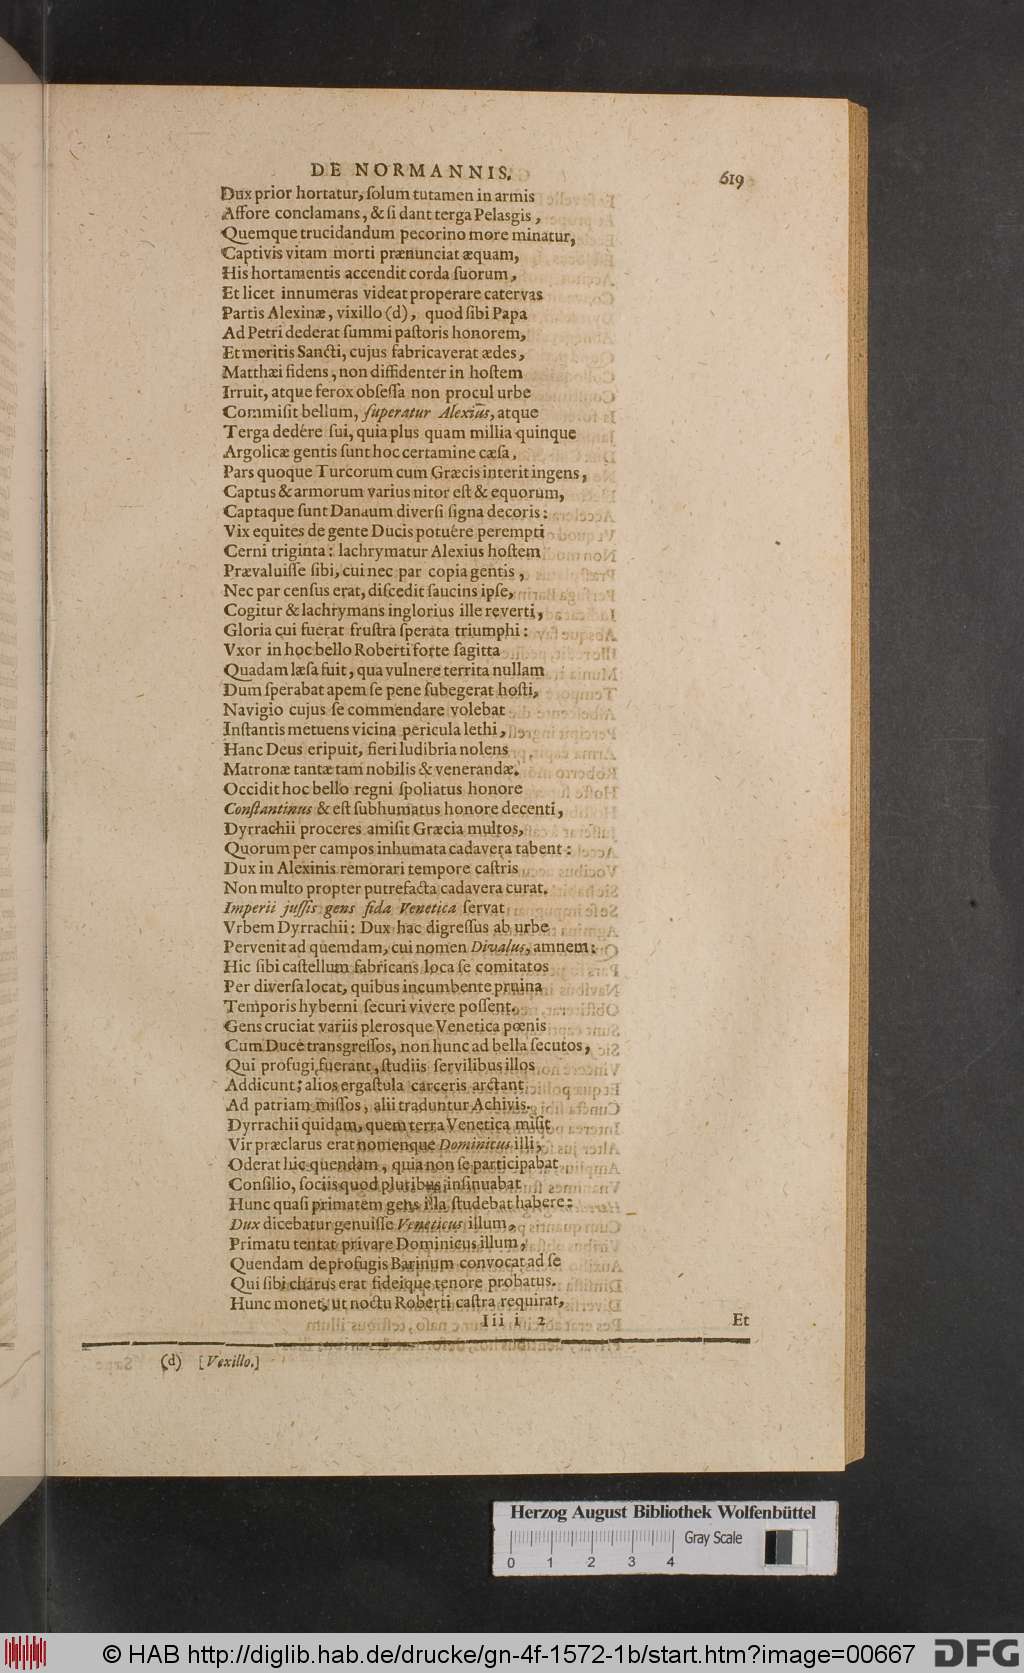 DE NORMANNIS. 619
Dux prior hortatur, ſolum tutamen in armis
Affore conclamans, & ſi dant terga Pelasgis,
Quemque trucidandum pecorino more minatur,
Captivis vitam morti prænunciat æquam,
His hortamentis accendit corda ſuorum,
Et licet innumeras videat properare catervas
Partis Alexinæ, vixillo (d), quod ſibi Papa
Ad Petri dederat ſummi paſtoris honorem,
Et meritis Sancti, cujus fabricaverat ædes,
Matthæi fidens, non diffidenter in hoſtem
Irruit, atque ferox obſeſſa non procul urbe
Commiſit bellum, ſuperatur Alexius, atque
Terga dedére ſui, quia plus quam millia quinque
Argolicæ gentis ſunt hoc certamine cæſa,
Pars quoque Turcorum cum Græcis interit ingens,
Captus & armorum varius nitor eſt & equorum,
Captaque ſunt Danaum diverſi ſigna decoris:
Vix equites de gente Ducis potuére perempti
Cerni triginta: lachrymatur Alexius hoſtem
Prævaluiſſe ſibi, cui nec par copia gentis,
Nec par cenſus erat, diſcedit ſaucius ipſe,
Cogitur & lachrymans inglorius ille reverti,
Gloria cui fuerat fruſtra ſperata triumphi:
Vxor in hoc bello Roberti forte ſagitta
Quadam læſa fuit, qua vulnere territa nullam
Dum ſperabat apem ſe pene ſubegerat hoſti,
Navigio cujus ſe commendare volebat
Inſtantis metuens vicina pericula lethi,
Hanc Deus eripuit, fieri ludibria nolens
Matronæ tantæ tam nobilis & venerandæ.
Occidit hoc bello regni ſpoliatus honore
Conſtantinus & eſt ſubhumatus honore decenti,
Dyrrachii proceres amiſit Græcia multos,
Quorum per campos inhumata cadavera tabent:
Dux in Alexinis remorari tempore caſtris
Non multo propter putrefacta cadavera curat.
Imperii juſſis gens fida Venetica ſervat
Vrbem Dyrrachii: Dux hac digreſſus ab urbe
Pervenit ad quemdam, cui nomen Divalus, amnem:
Hic ſibi caſtellum fabricans loca ſe comitatos
Per diverſa locat, quibus incumbente pruina
Temporis hyberni ſecuri vivere poſſent.
Gens cruciat variis plerosque Venetica pœnis
Cum Duce transgreſſos, non hunc ad bella ſecutos,
Qui profugi fuerant, ſtudiis ſervilibus illos
Addicunt; alios ergaſtula carceris arctant
Ad patriam miſſos, alii traduntur Achivis.
Dyrrachii quidam, quem terra Venetica miſit
Vir præclarus erat nomenque Dominicus illi,
Oderat hic quendam, quia non ſe participabat
Conſilio, ſociis quod pluribus inſinuabat
Hunc quaſi primatem gens illa ſtudebat habere:
Dux dicebatur genuiſſe Veneticus illum,
Primatu tentat privare Dominicus illum,
Quendam de profugis Barinum convocat ad ſe
Qui ſibi charus erat fideique tenore probatus.
Hunc monet, ut noctu Roberti caſtra requirat,
Iii i 2 Et
(d) [Vexillo.]
Herzog August Bibliothek Wolfenbüttel
Gray Scale
0 1 2 3 4
© HAB http://diglib.hab.de/drucke/gn-4f-1572-1b/start.htm?image=00667 DFG